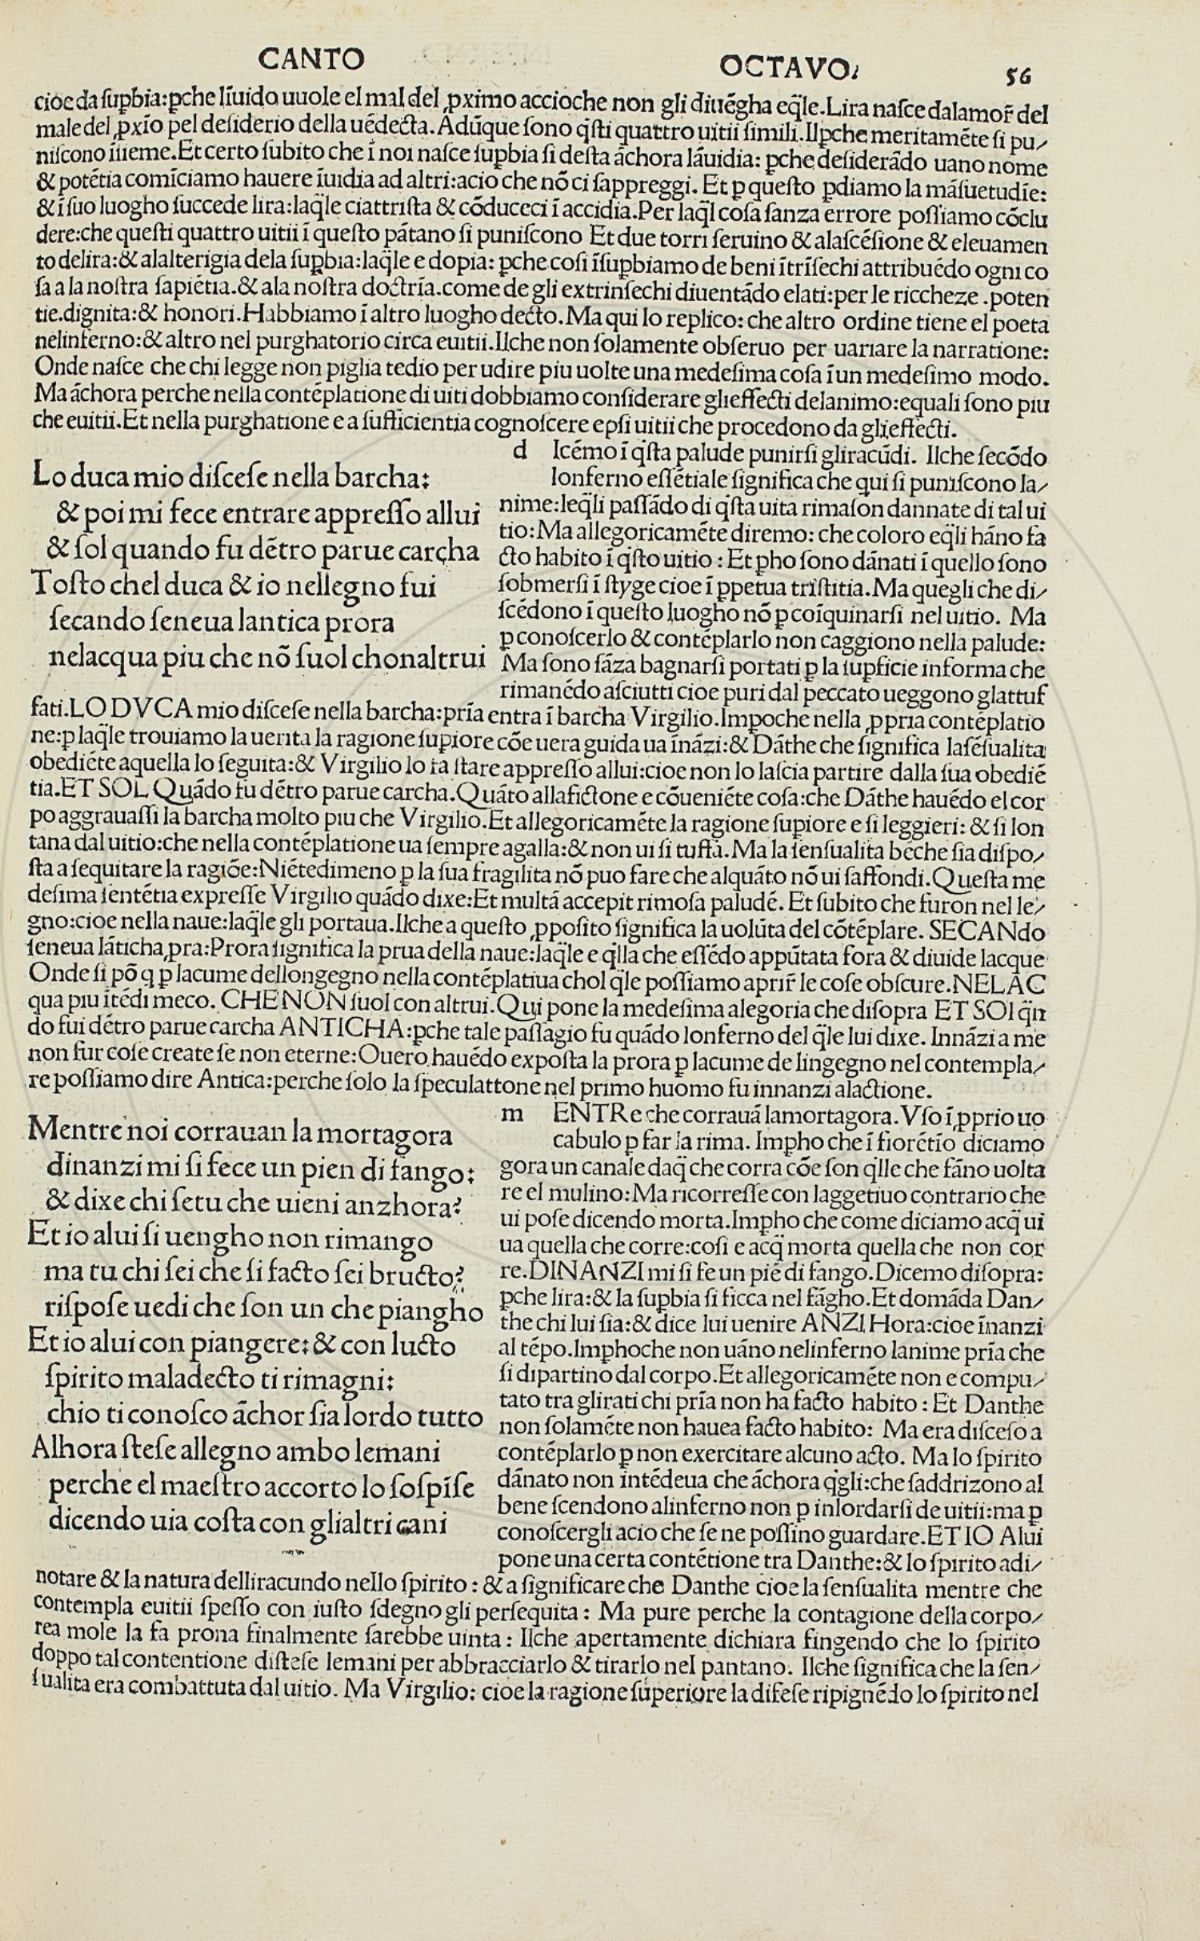 CANTO OCTAVO. 56
cioe da suꝑbia:ꝑche lĩuido uuole el mal del ꝓximo accioche non gli diuẽgha eq̃le.Lira nasce dalamor̃ del
male del ꝓxĩo ꝑel desiderio della uẽdecta.Adũque sono q̃sti quattro uitii simili.Ilꝑche meritamẽte si pu/
niscono ĩsieme.Et certo subito che ĩ noi nasce suꝑbia si desta ãchora lãuidia: ꝑche desiderãdo uano nome
& potẽtia comĩciamo hauere ĩuidia ad altri:acio che nõ ci sappreggi. Et ꝑ questo ꝑdiamo la mãsuetudĩe:
& ĩ suo luogho succede lira:laq̃le ciattrista & cõduceci ĩ accidia.Per laq̃l cosa sanza errore possiamo cõclu
dere:che questi quattro uitii ĩ questo pãtano si puniscono Et due torri seruino & alascẽsione & eleuamen
to delira:& alalterigia dela suꝑbia:laq̃le e dopia: ꝑche cosi ĩsuꝑbiamo de beni ĩtrĩsechi attribuẽdo ogni co
sa a la nostra sapiẽtia.& ala nostra doctrĩa.come de gli extrinsechi diuentãdo elati:per le riccheze .poten
tie.dignita:& honori.Habbiamo ĩ altro luogho decto. Ma qui lo replico: che altro ordine tiene el poeta
nelinferno:& altro nel purghatorio circa euitii.Ilche non solamente obseruo per uariare la narratione:
Onde nasce che chi legge non piglia tedio per udire piu uolte una medesima cosa ĩ un medesimo modo.
Ma ãchora perche nella contẽplatione di uiti dobbiamo considerare glieffecti delanimo:equali sono piu
che euitii.Et nella purghatione e a sufficientia cognoscere epsi uitii che procedono da glieffecti.
Lo duca mio discese nella barcha:
& poi mi fece entrare appresso allui
& sol quando fu dẽtro parue carcha
Tosto chel duca & io nellegno fui
secando seneua lantica prora
nelacqua piu che nõ suol chonaltrui
d Icẽmo ĩ q̃sta palude punirsi gliracũdi. Ilche secõdo
lonferno essẽtiale significa che qui si puniscono la/
nime:leq̃li passãdo di q̃sta uita rimason dannate di tal ui
tio: Ma allegoricamẽte diremo: che coloro eq̃li hãno fa
cto habito ĩ q̃sto uitio : Et ꝑho sono dãnati ĩ quello sono
sobmersi ĩ styge cioe ĩ ꝑpetua tristitia. Ma quegli che di/
scẽdono ĩ questo luogho nõ ꝑ coĩquinarsi nel uitio. Ma
ꝑ conoscerlo & contẽplarlo non caggiono nella palude:
Ma sono sãza bagnarsi portati ꝑ la suꝑficie informa che
rimanẽdo asciutti cioe puri dal peccato ueggono glattuf
fati.LO DVCA mio discese nella barcha:prĩa entra ĩ barcha Virgilio.Impoche nella ꝓpria contẽplatio
ne:ꝑ laq̃le trouiamo la uerita la ragione suꝑiore cõe uera guida ua ĩnãzi:& Dãthe che significa lasẽsualita
obediẽte aquella lo seguita:& Virgilio lo fa stare appresso allui:cioe non lo lascia partire dalla sua obediẽ
tia.ET SOL Quãdo fu dẽtro parue carcha.Quãto allafictione e cõueniẽte cosa:che Dãthe hauẽdo el cor
po aggrauassi la barcha molto piu che Virgilio.Et allegoricamẽte la ragione suꝑiore e si leggieri: & si lon
tana dal uitio:che nella contẽplatione ua sempre agalla:& non ui si tuffa. Ma la sensualita bẽche sia dispo/
sta a sequitare la ragiõe:Niẽtedimeno ꝑ la sua fragilita nõ puo fare che alquãto nõ ui saffondi.Questa me
desima sentẽtia expresse Virgilio quãdo dixe:Et multã accepit rimosa paludẽ. Et subito che furon nel le/
gno:cioe nella naue:laq̃le gli portaua.Ilche a questo ꝓposito significa la uolũta del cõtẽplare. SECANdo
seneua lãticha ꝓra:Prora significa la prua della naue:laq̃le e q̃lla che essẽdo appũtata fora & diuide lacque
Onde si põ q̃ ꝑ lacume dellongegno nella contẽplatiua chol q̃le possiamo aprir̃ le cose obscure.NELAC
qua piu ĩtẽdi meco. CHE NON suol con altrui.Qui pone la medesima alegoria che disopra ET SOl q̃n
do fui dẽtro parue carcha ANTICHA:ꝑche tale passagio fu quãdo lonferno del q̃le lui dixe. Innãzi a me
non fur cose create se non eterne:Ouero hauẽdo exposta la prora ꝑ lacume de lingegno nel contempla/
re possiamo dire Antica:perche solo la speculattone nel primo huomo fu innanzi alactione.
Mentre noi corrauan la mortagora
dinanzi mi si fece un pien di fango:
& dixe chi setu che uieni anzhora?
Et io alui si uengho non rimango
ma tu chi sei che si facto sei bructo?
rispose uedi che son un che piangho
Et io alui con piangere:& con lucto
spirito maladecto ti rimagni:
chio ti conosco ãchor sia lordo tutto
Alhora stese allegno ambo lemani
perche el maestro accorto lo sospĩse
dicendo uia costa con glialtri cani
m ENTRe che corrauã lamortagora. Vso ĩ ꝓprio uo
cabulo ꝑ far la rima. Impho che ĩ fiorẽtio diciamo
gora un canale daq̃ che corra cõe son q̃lle che fãno uolta
re el mulino: Ma ricorresse con laggetiuo contrario che
ui pose dicendo morta.Impho che come diciamo acq̃ ui
ua quella che corre:cosi e acq̃ morta quella che non cor
re.DINANZI mi si fe un piẽ di fango.Dicemo disopra:
ꝑche lira:& la suꝑbia si ficca nel fãgho.Et domãda Dan/
the chi lui sia:& dice lui uenire ANZI Hora:cioe ĩnanzi
al tẽpo.Imphoche non uãno nelinferno lanime prĩa che
si dipartino dal corpo.Et allegoricamẽte non e compu/
tato tra glirati chi prĩa non ha facto habito : Et Danthe
non solamẽte non hauea facto habito: Ma era disceso a
contẽplarlo ꝑ non exercitare alcuno acto. Ma lo spirito
dãnato non intẽdeua che ãchora q̃gli:che saddrizono al
bene scendono alinferno non ꝑ inlordarsi de uitii:ma ꝑ
conoscergli acio che se ne possino guardare.ET IO Alui
pone una certa contẽtione tra Danthe:& lo spirito adi/
notare & la natura delliracundo nello spirito : & a significare che Danthe cioe la sensualita mentre che
contempla euitii spesso con iusto sdegno gli persequita : Ma pure perche la contagione della corpo/
rea mole la fa prona finalmente sarebbe uinta : Ilche apertamente dichiara fingendo che lo spirito
doppo tal contentione distese lemani per abbracciarlo & tirarlo nel pantano. Ilche significa che la sen/
sualita era combattuta dal uitio. Ma Virgilio: cioe la ragione superiore la difese ripignẽdo lo spirito nel